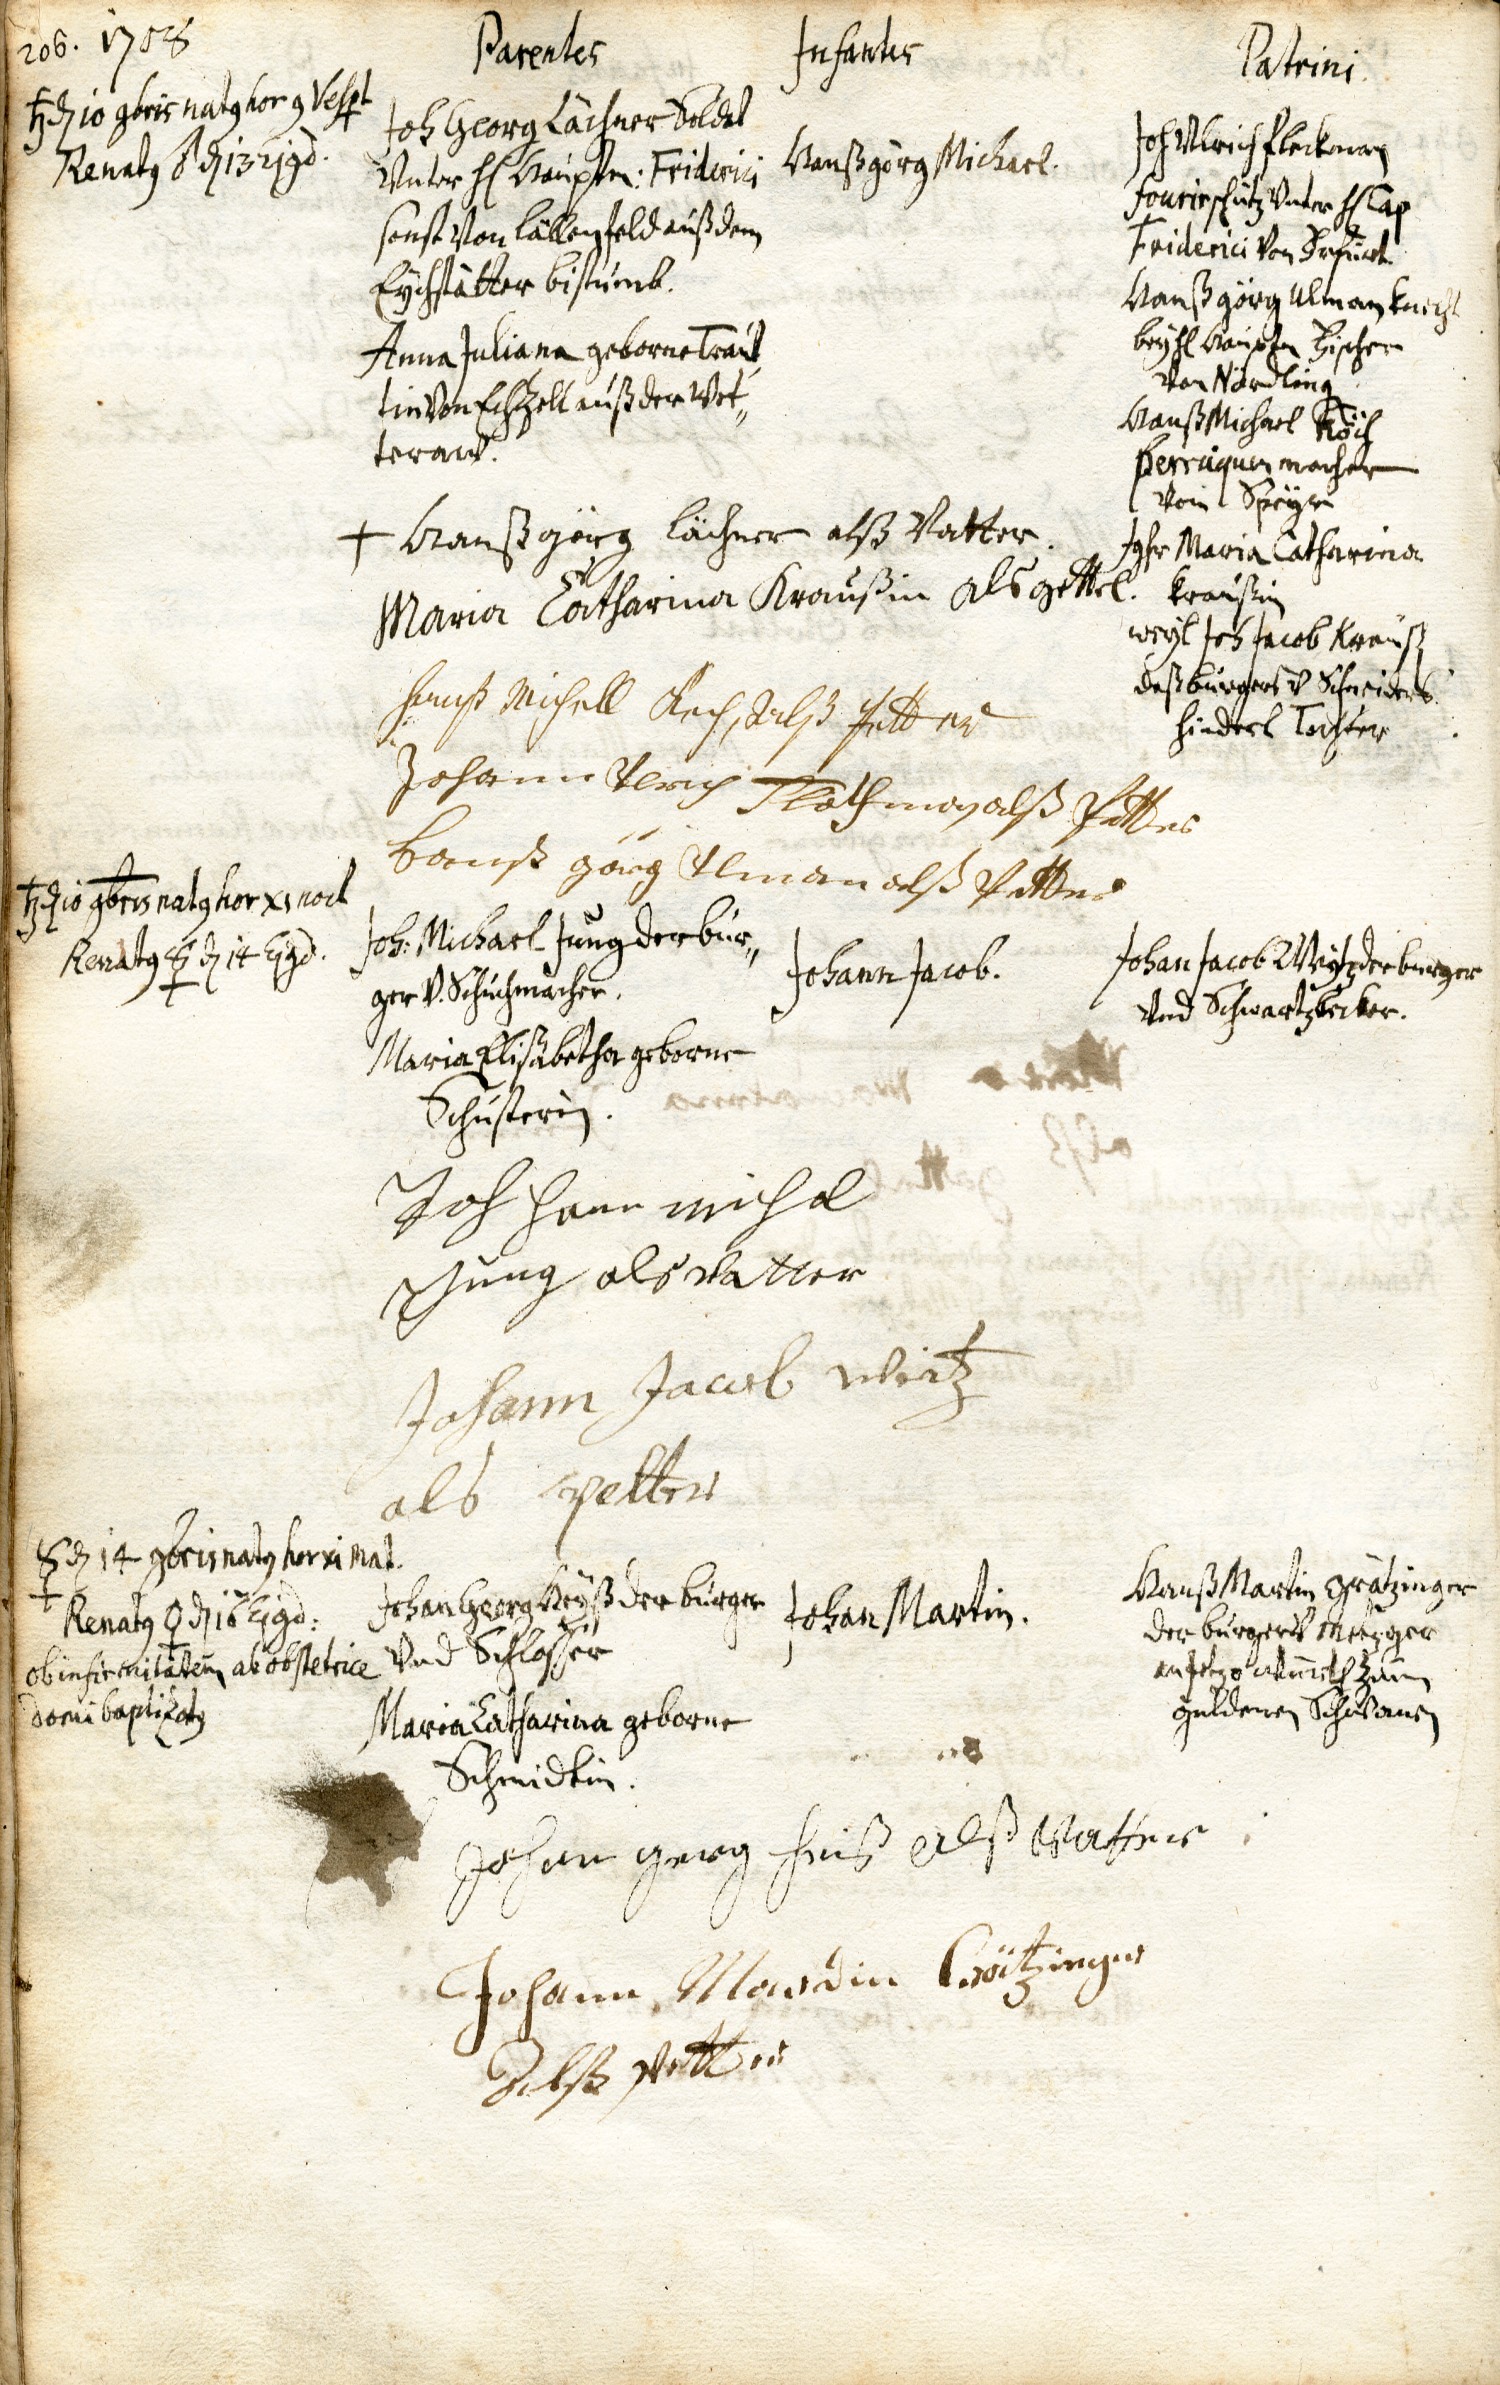 206. 1708
Parentes
Infantes
Patrini.
♄ d 10 9bris nat9 hor 9 Vesp̲t̲
Renat9 ♂ d 13 ejgd.
Joh Georg Lächner Soldat
Unter H Hauptm: Friderici
sonst Von
auß dem
Eychstätter bistumb.
Anna Juliana geborne Traut
tin Von Echzell auß der Wet„
teraw.
Hanß görg Michael.
Joh Ulrich fleckman
fourirschütz Unter H Cap
Friderici Von Erfurt
Hanß görg Ulman knecht
bey H Hauptm Fischer
Von Nördling
Hanß Michael
Perruquenmacher
Von Speyer
Jgfr Maria Catharina
Kraußin
weyl Joh Jacob Krauß
deß burgers V Schneiders
hinderl Tochter
+ Hanß görg Lächner alß Vatter.
Maria Catharina Kraußin als gettel.
Hanß Michell
alß Petter
Johann Ulrich
alß Petter
Hanß görg Ulman alß Petter
♄ d 10 9bris nat9 hor XI noct
Renat9 ☿ d 14 Ejgd.
Joh: Michael Jung der bur„
ger V. Schuchmacher.
Maria Elisabetha geborne
Schusterin.
Johann Jacob.
Johan Jacob Weytz der burger
Und Schwartzbecker.
Joh hann michel
Jung als vatter
Johann Jacob wirtz
als petter
☿ d 14 9bris nat9 hor XI mat.
Renat9 ♀ d 16 Ejgd:
ob infirmitatem ab obstetrice
domi baptizat9
Johan Georg Heyß der burger
Und Schlosser
Maria Catharina geborne
Schmidtin.
Johan Martin.
Hanß Martin Grätzinger
der burger V Metzger
zum
guldenen Schwanen
Johan georg heiß alß Vatter
Johann Mardin Crötzinger
Alß Petter